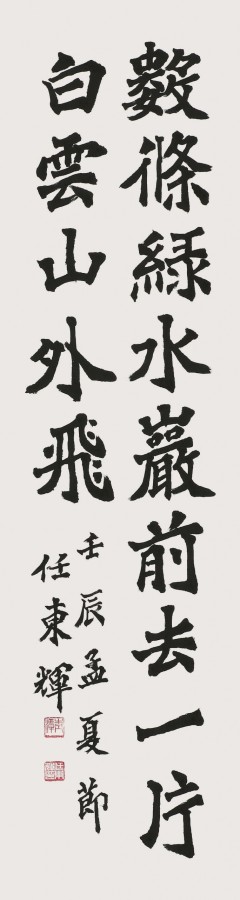 數條綠水巖前去一片
白雲山外飛
壬辰孟夏節
任東輝